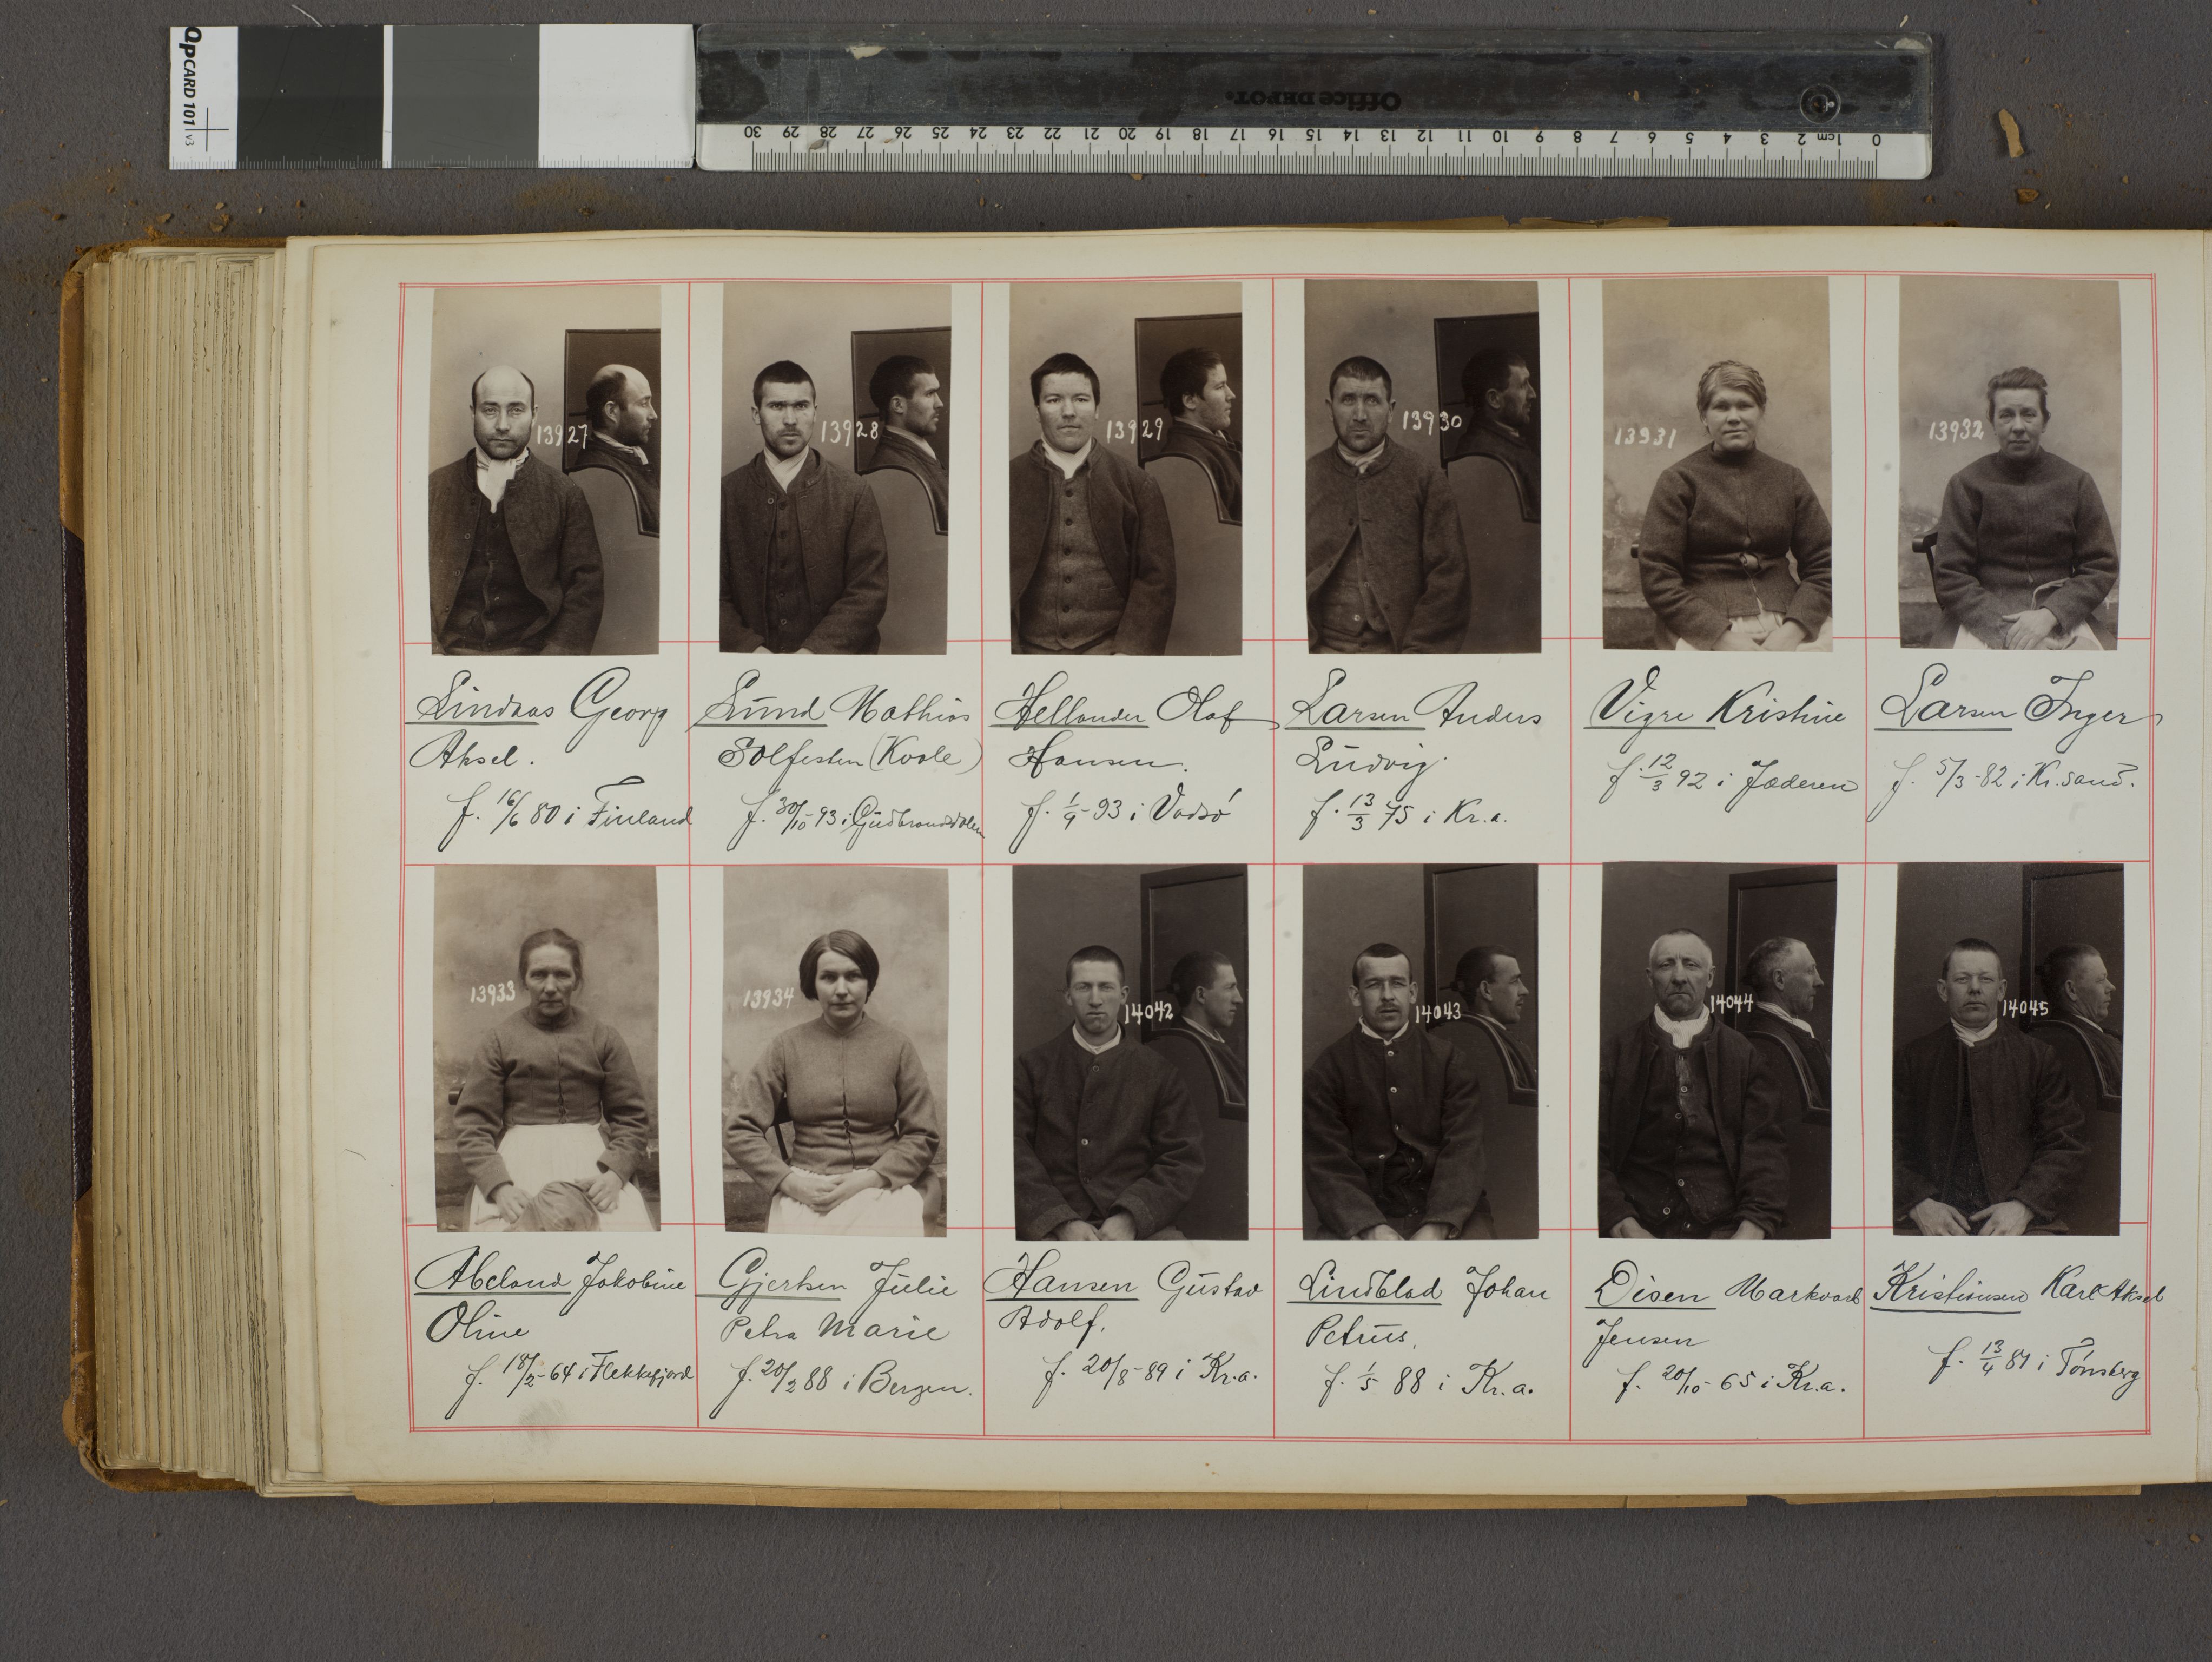 QPCARD 101 v3
Office DEPOT.
0 1cm 2 3 4 5 6 7 8 9 10 11 12 13 14 15 16 17 18 19 20 21 22 23 24 25 26 27 28 29 30
13927
13928
13929
13930
13931
13932
Lindaas Georg
Aksel.
f. 16/6 80 i Finland
Lund Mathias
Solfesten (Kvale)
f. 30/10-93 i Gudbrandsdalen
Hellander Olaf
Hansen.
f. 1/9-93 i Vadsö
Larsen Anders
Ludvig.
f. 13/3 75 i Kr.a.
Vigre Kristine
f. 12/3 92 i Jæderen
Larsen Inger
f. 5/3-82 i Kr.sand.
13933
13934
14042
14043
14044
14045
Abeland Jakobine
Oline
f. 18/2-64 i Flekkefjord
Gjertsen Julie
Petra Marie
f. 20/2 88 i Bergen.
Hansen Gustav
Adolf.
f. 20/8-89 i Kr.a.
Lindblad Johan
Petrus.
f. 1/5 88 i Kr.a.
Disen Markvard
Jensen
f. 20/10-65 i Kr.a.
Kristiansen Karl Aksel
f. 13/4 81 i Tönsberg